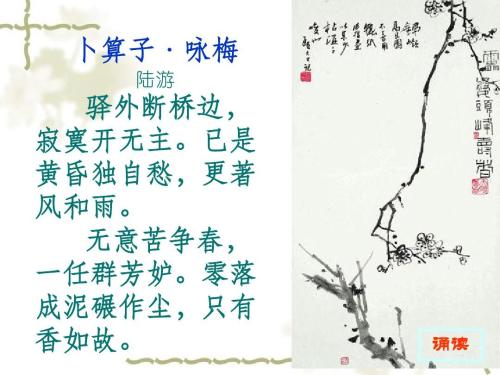 卜算子·咏梅
陆游
驿外断桥边，
寂寞开无主。已是
黄昏独自愁，更著
风和雨。
无意苦争春，
一任群芳妒。零落
成泥碾作尘，只有
香如故。
诵读